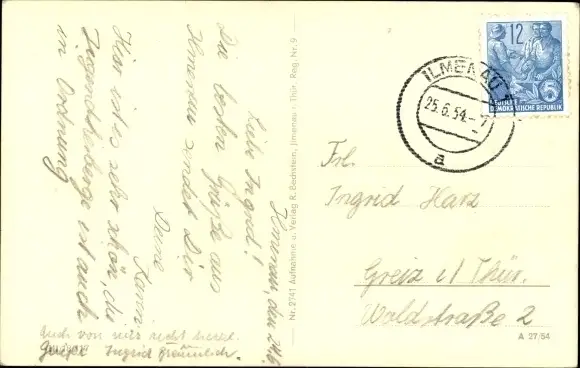 Ilmenau, den 24.6.
Liebe Ingrid!
Die besten Grüße aus
Ilmenau sendet Dir
Deine Karin
Hier ist es sehr schön, die
Jugendherberge ist auch
in Ordnung
Auch von mir recht herzl.
Ingrid
Nr. 2741 Aufnahme u. Verlag R. Bechstein, Jlmenau i. Thür. Reg. Nr. 9
ILMENAU 1
25.6.54.-7
a
12
DEUTSCHE
DEMOKRATISCHE REPUBLIK
Frl.
Ingrid Harz
Greiz i/ Thür.
Waldstraße 2
A 27/54